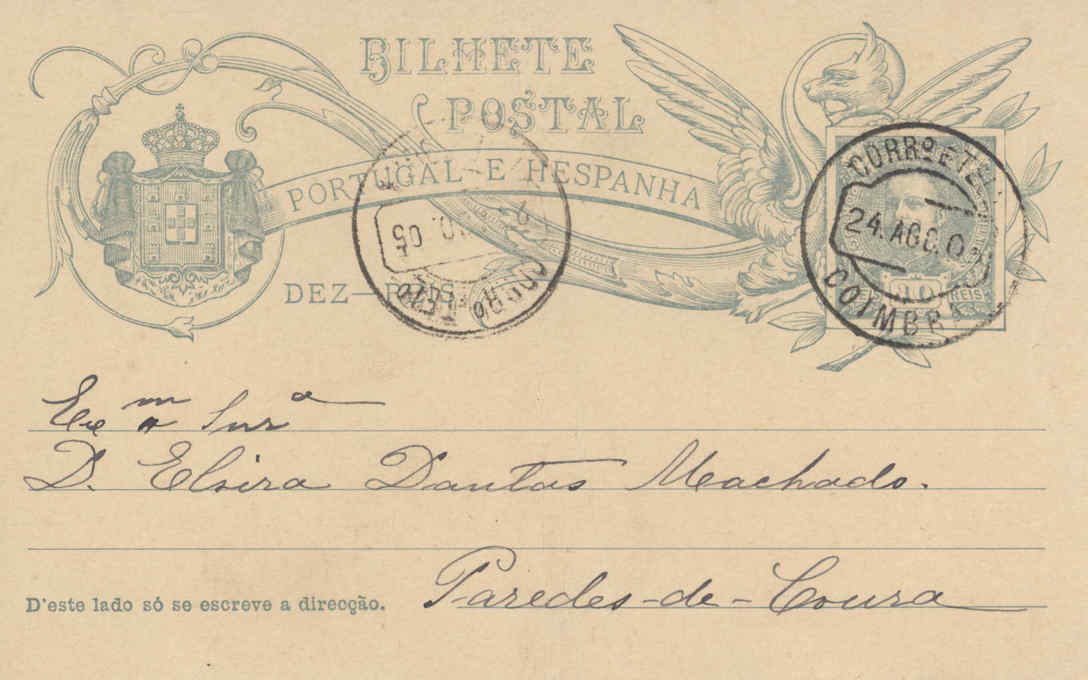 BILHETE
POSTAL
PORTUGAL E HESPANHA
DEZ
CORRº E TEL
24. AGO. 0
COIMBRA
10
REIS
05
CORRº TELº
Exmª Snrª
D. Elvira Dantas Machado.
D'este lado só se escreve a direcção.
Paredes-de-Coura